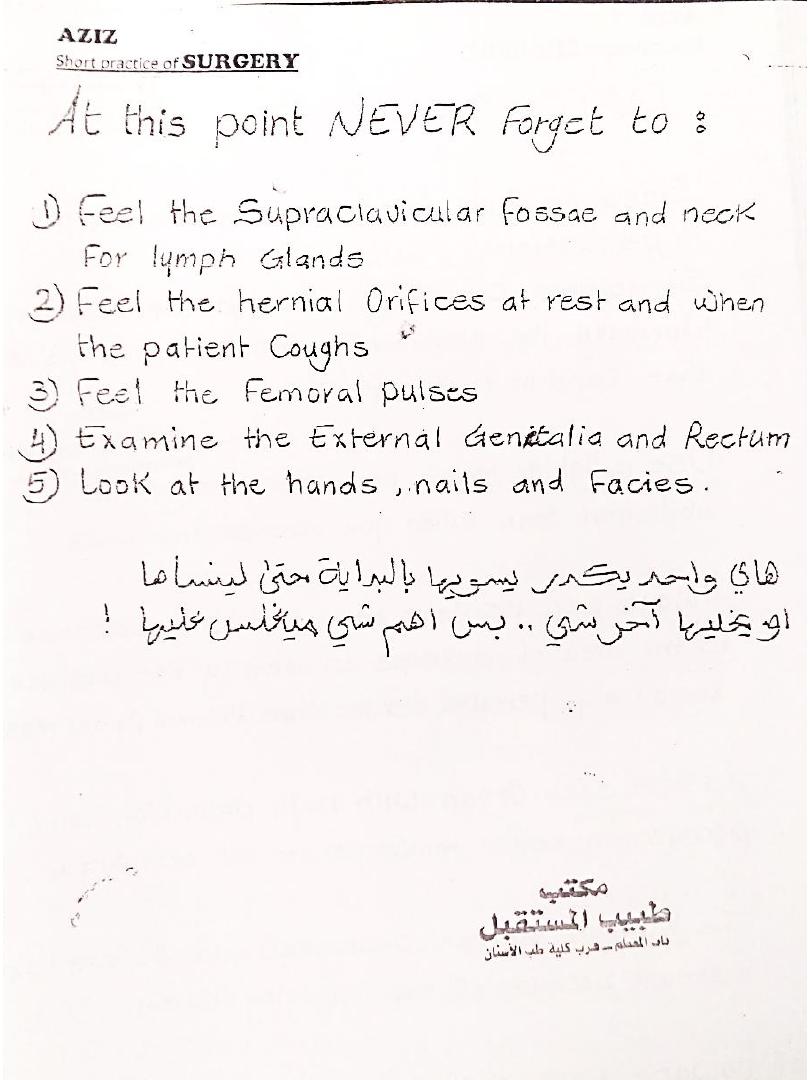 AZIZ
Short practice of SURGERY
At this point NEVER Forget to :
1) Feel the Supraclavicular Fossae and neck
For lymph Glands
2) Feel the hernial Orifices at rest and when
the patient Coughs
3) Feel the Femoral pulses
4) Examine the External Genitalia and Rectum
5) Look at the hands , nails and Facies .
هاي واحد يكدر يسويها بالبداية حتى لينساها
او يخليها آخر شي .. بس اهم شي ميغلس عليها !
مكتب
طبيب المستقبل
باب المعظم - قرب كلية طب الأسنان